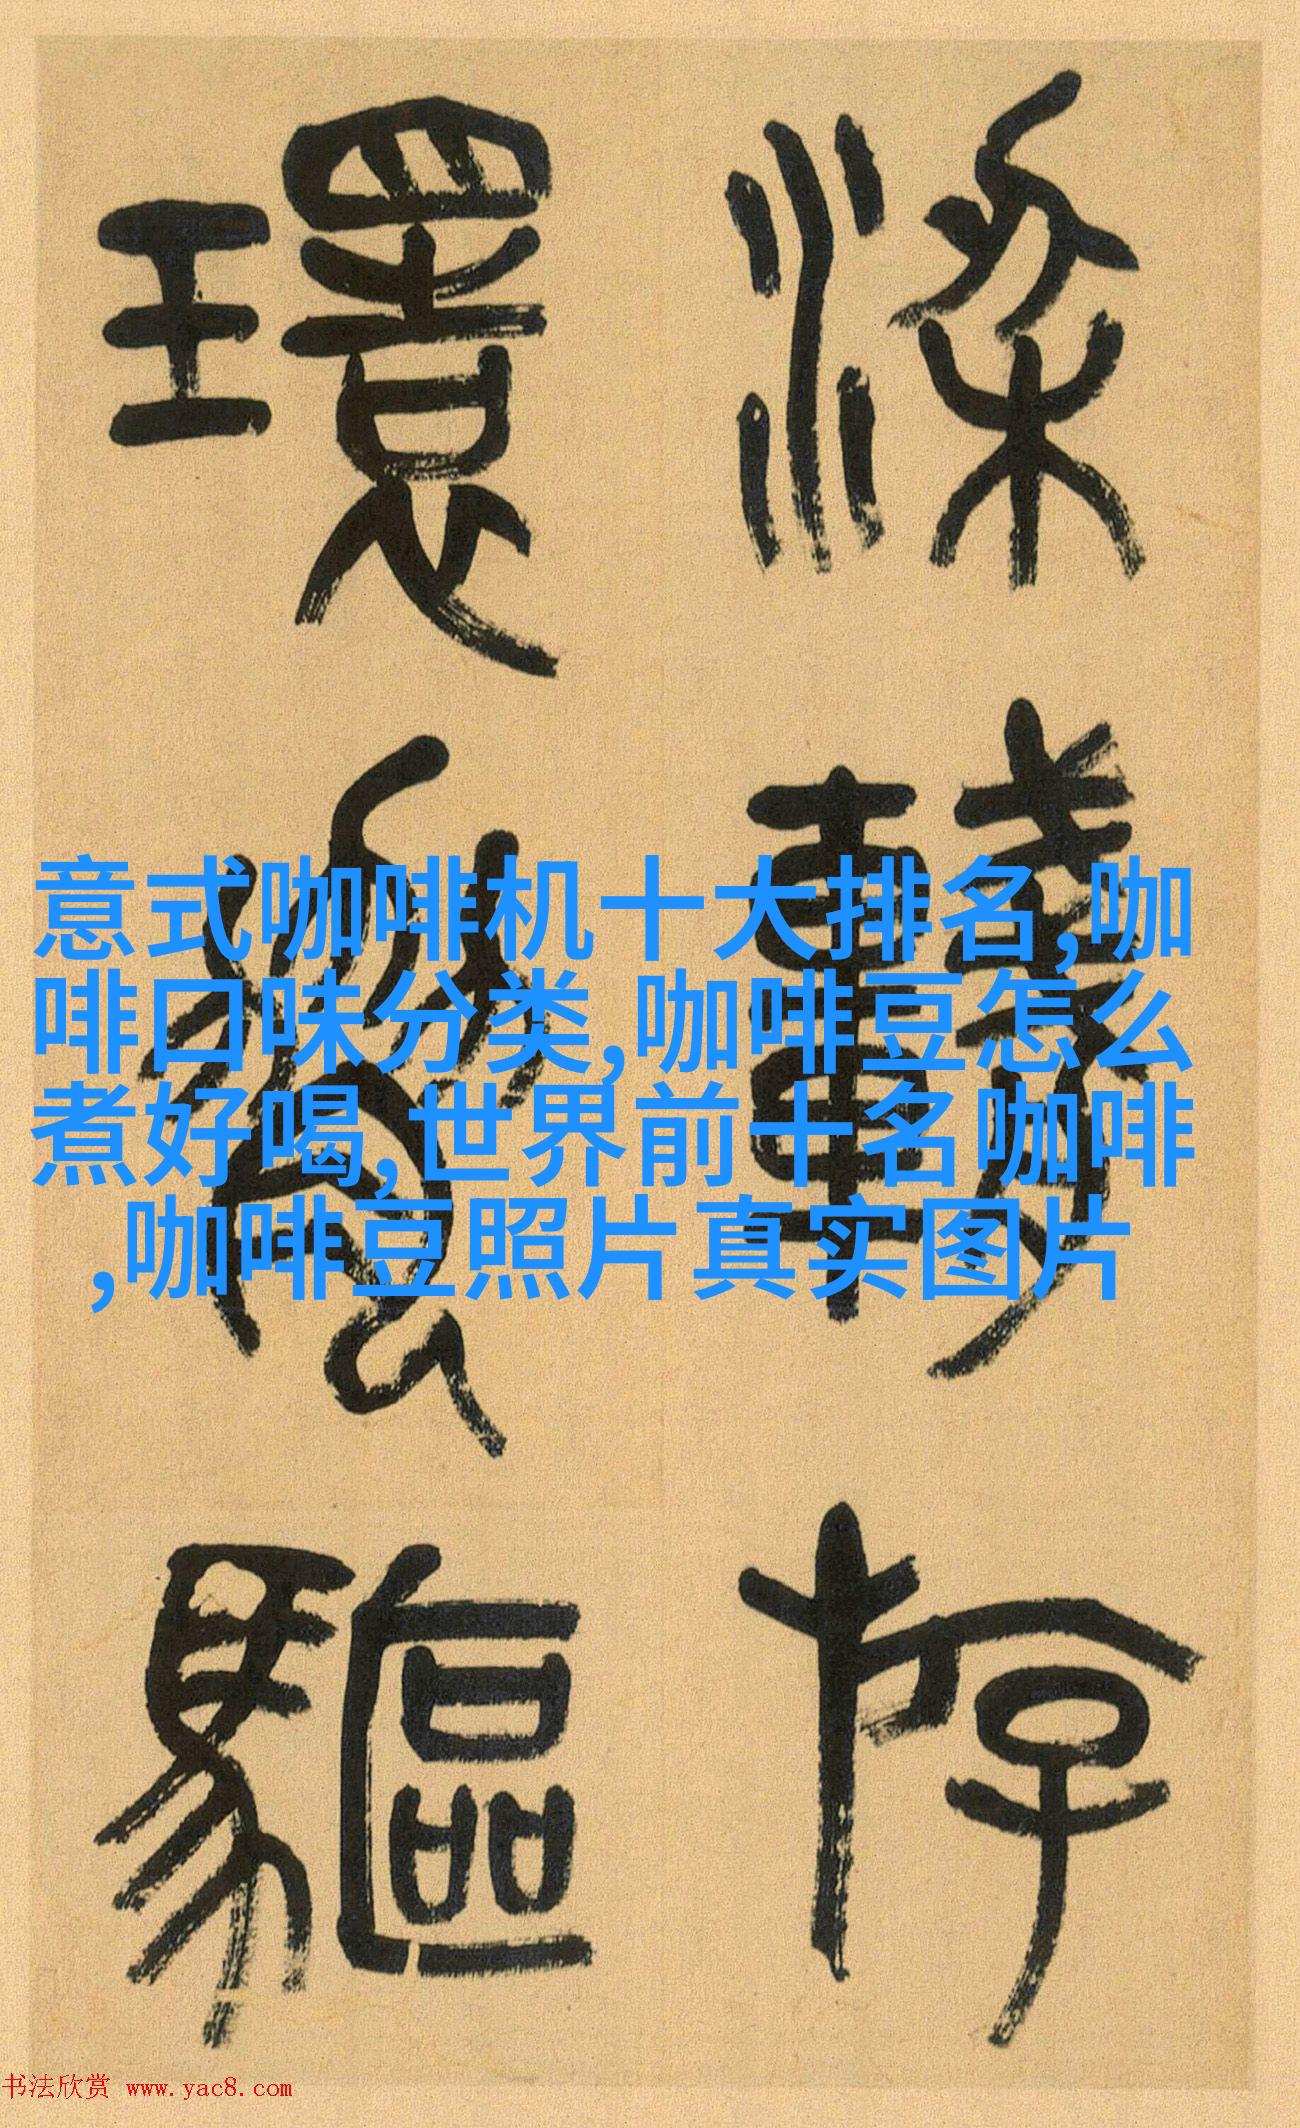 梁輈斿
環脅驅
意式咖啡机十大排名,咖
啡口味分类,咖啡豆怎么
煮好喝,世界前十名咖啡
,咖啡豆照片真实图片
书法欣赏 www.yac8.com